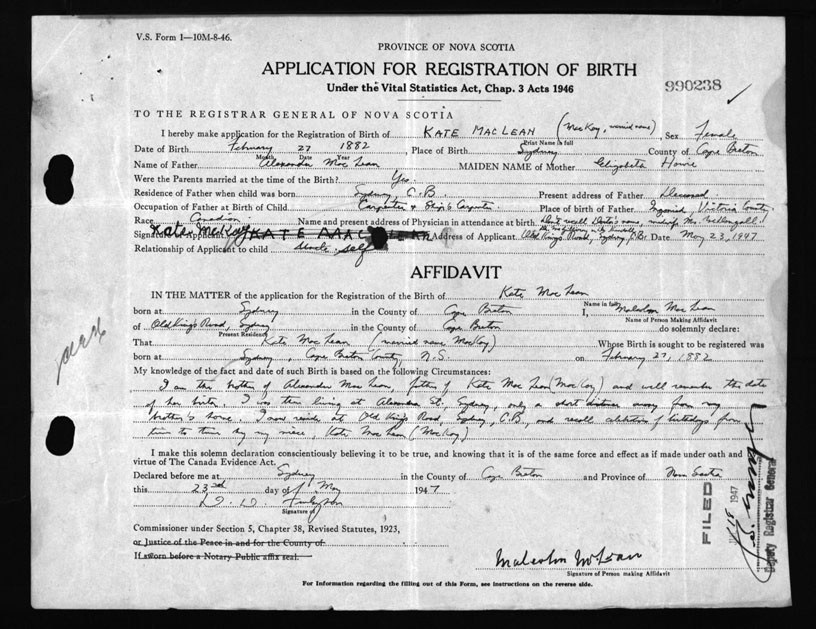 V.S. Form 1—10M-8-46.
PROVINCE OF NOVA SCOTIA
APPLICATION FOR REGISTRATION OF BIRTH
Under the Vital Statistics Act, Chap. 3 Acts 1946
990238
TO THE REGISTRAR GENERAL OF NOVA SCOTIA
I hereby make application for the Registration of Birth of KATE MACLEAN (MacKay, married name) Sex Female
Print Name in full
Date of Birth February 27 1882 Place of Birth Sydney County of Cape Breton
Month Date Year
Name of Father Alexander MacLean MAIDEN NAME of Mother Elizabeth Howie
Were the Parents married at the time of Birth? Yes.
Residence of Father when child was born Sydney C.B. Present address of Father Deceased
Occupation of Father at Birth of Child Carpenter & Ship's Carpenter Place of birth of Father Ingonish Victoria County
Race Canadian Name and present address of Physician in attendance at birth Don't recall Doctor's name, midwife Mrs. McDougall
Signature of Applicant Kate McKay KATE MACLEAN Address of Applicant Old Kings Road, Sydney, C.B. Date May 23, 1947
Relationship of Applicant to child Uncle self
AFFIDAVIT
IN THE MATTER of the application for the Registration of the Birth of Kate MacLean
Name in full
born at Sydney in the County of Cape Breton I, Malcolm MacLean
Name of Person Making Affidavit
of Old Kings Road, Sydney in the County of Cape Breton do solemnly declare:
Present Residence
That Kate MacLean (married name MacKay) Whose Birth is sought to be registered was
born at Sydney, Cape Breton County N.S. on February 27, 1882
My knowledge of the fact and date of such Birth is based on the following Circumstances:
I am the brother of Alexander MacLean, father of Kate MacLean (MacKay) and well remember the date
of her birth. I was then living at Alexandra St. Sydney, only a short distance away from my
brother's home. I now reside at Old Kings Road, Sydney, C.B., and recall celebration of birthdays from
time to time by my niece, Kate MacLean (MacKay)
I make this solemn declaration conscientiously believing it to be true, and knowing that it is of the same force and effect as if made under oath and
virtue of The Canada Evidence Act.
Declared before me at Sydney in the County of Cape Breton and Province of Nova Scotia
this 23rd day of May 1947
D. D. Finlayson
Signature of
Commissioner under Section 5, Chapter 38, Revised Statutes, 1923,
or Justice of the Peace in and for the County of
If sworn before a Notary Public affix seal.
Malcolm McLean
Signature of Person making Affidavit
For Information regarding the filling out of this Form, see instructions on the reverse side.
FILED
1947
Deputy Registrar General